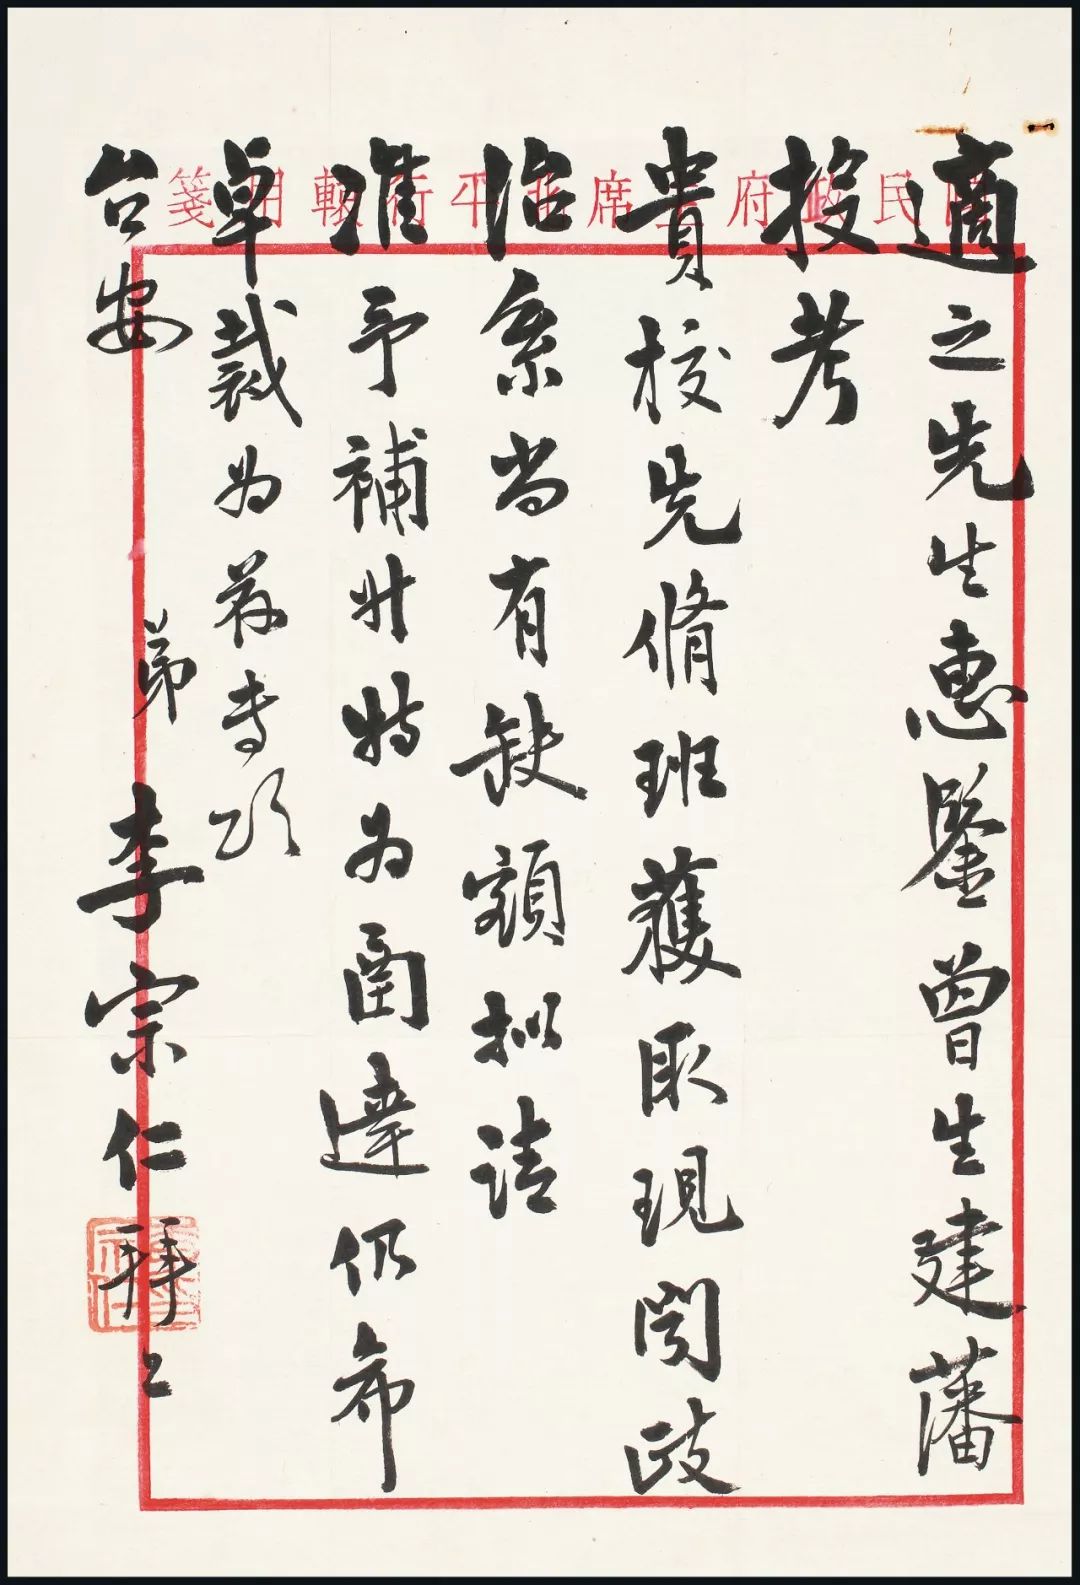 適之先生惠鑒曾生建藩
投考
貴校先脩班獲取現闻政
治系尚有缺額拟請
准予補升特為函達仍希
卓裁為荷专頌
台安
弟李宗仁拜上
國民政府主席北平行轅用箋